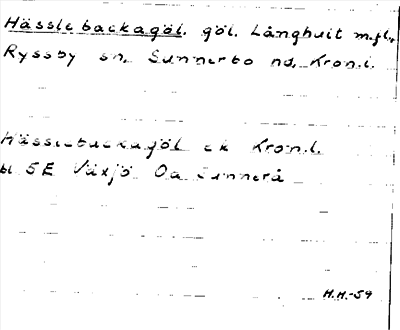 Hässlebackagöl. göl. Långhult m.fl.,
Ryssby sn, Sunnerbo hd, Kron.l.
Hässlebackagöl ek Kron.l.
bl 5E Växjö Oa Sunnerå
H.H.-59